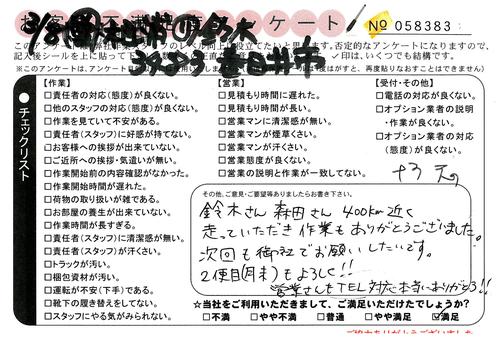 お客様不満足度アンケート
No 058383
このアンケートは弊社作業スタッフのレベル向上に役立てたいと思います。否定的なアンケートになりますので、
記入後シールを上に貼って下
✓印は、いくつでも結構です。
【作業】
□責任者の対応(態度)が良くない。
□他のスタッフの対応(態度)が良くない。
□作業を見ていて不安がある。
□責任者(スタッフ)に好感が持てない。
□お客様への挨拶が出来ていない。
□ご近所への挨拶・気遣いが無い。
□作業開始前の内容確認がなかった。
□作業開始時間が遅れた。
□荷物の取り扱いが雑である。
□お部屋の養生が出来ていない。
□作業時間が長すぎる。
□責任者(スタッフ)に清潔感が無い。
□責任者(スタッフ)が汗くさい。
□トラックが汚い。
□梱包資材が汚い。
□運転が不安(下手)である。
□靴下の履き替えをしてない。
□スタッフにやる気がみられない。
【営業】
□見積もり時間に遅れた。
□見積もり時間が長い。
□営業マンに清潔感が無い。
□営業マンが煙草くさい。
□営業マンが汗くさい。
□営業態度が良くない。
□営業の説明と作業が一致してない。
【受付・その他】
□電話の対応が良くない。
□オプション業者の説明
・作業が良くない。
□オプション業者の対応
(態度)が良くない。
●チェックリスト
その他、ご意見・ご要望等ありましたらお書き下さい。
鈴木さん 森田さん 400km近く
走っていただき 作業もありがとうございました。
次回も御社でお願いしたいです。
2便目(月末)もよろしく!!
営業さんもTEL対応本当にありがとう!!
☆当社をご利用いただきまして、ご満足いただけたでしょうか?
□不満 □やや不満 □普通 □やや満足 ☑満足
ご協力ありがとうございました